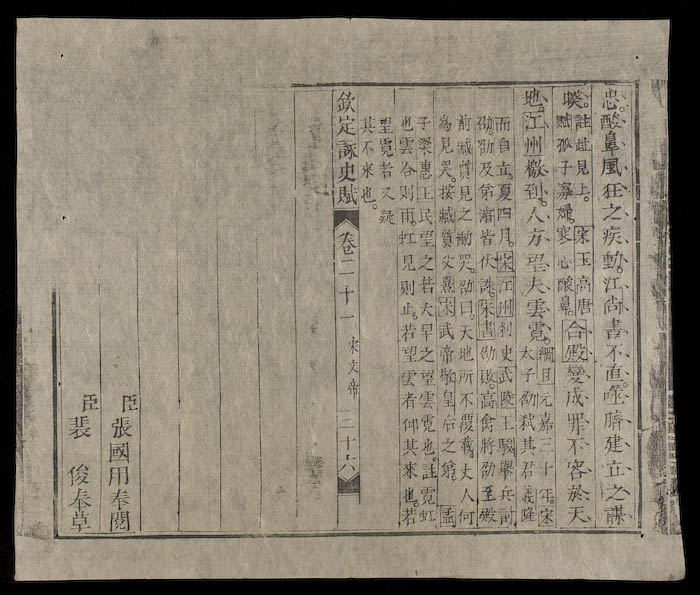 忠。酸鼻風狂之疾動。江尚書不直。噬臍建立之謀
嘆。
註並見上。宋玉高唐
賦孤子寡婦。寒心酸鼻。
合殿變成罪不容於天
地。江州檄到。人方望夫雲霓。
綱目元嘉三十年。宋
太子劭弒其君義隆
而自立。夏四月。宋江州刺史武陵王駿舉兵討
劭。劭及第濬皆伏誅。宋書劭敗。高禽將劭至殿
前臧質見之慟哭。劭曰。天地所不覆載。丈人何
為見哭。按臧質父熹宋武帝敬皇后之弟。孟
子梁惠王民望之若大旱之望雲霓也。註霓虹
也雲合則雨。虹見則止。若望雲者仰其來也。若
望霓者又疑
其不來也。
欽定詠史賦 卷二十一 宋文帝 二十六
臣張國用奉閱
臣裴俊奉草